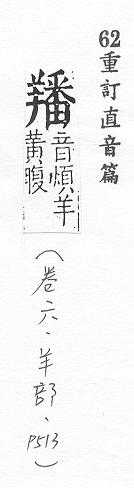 62重訂直音篇
羳音煩羊
黃腹
(卷六、羊部、P513)